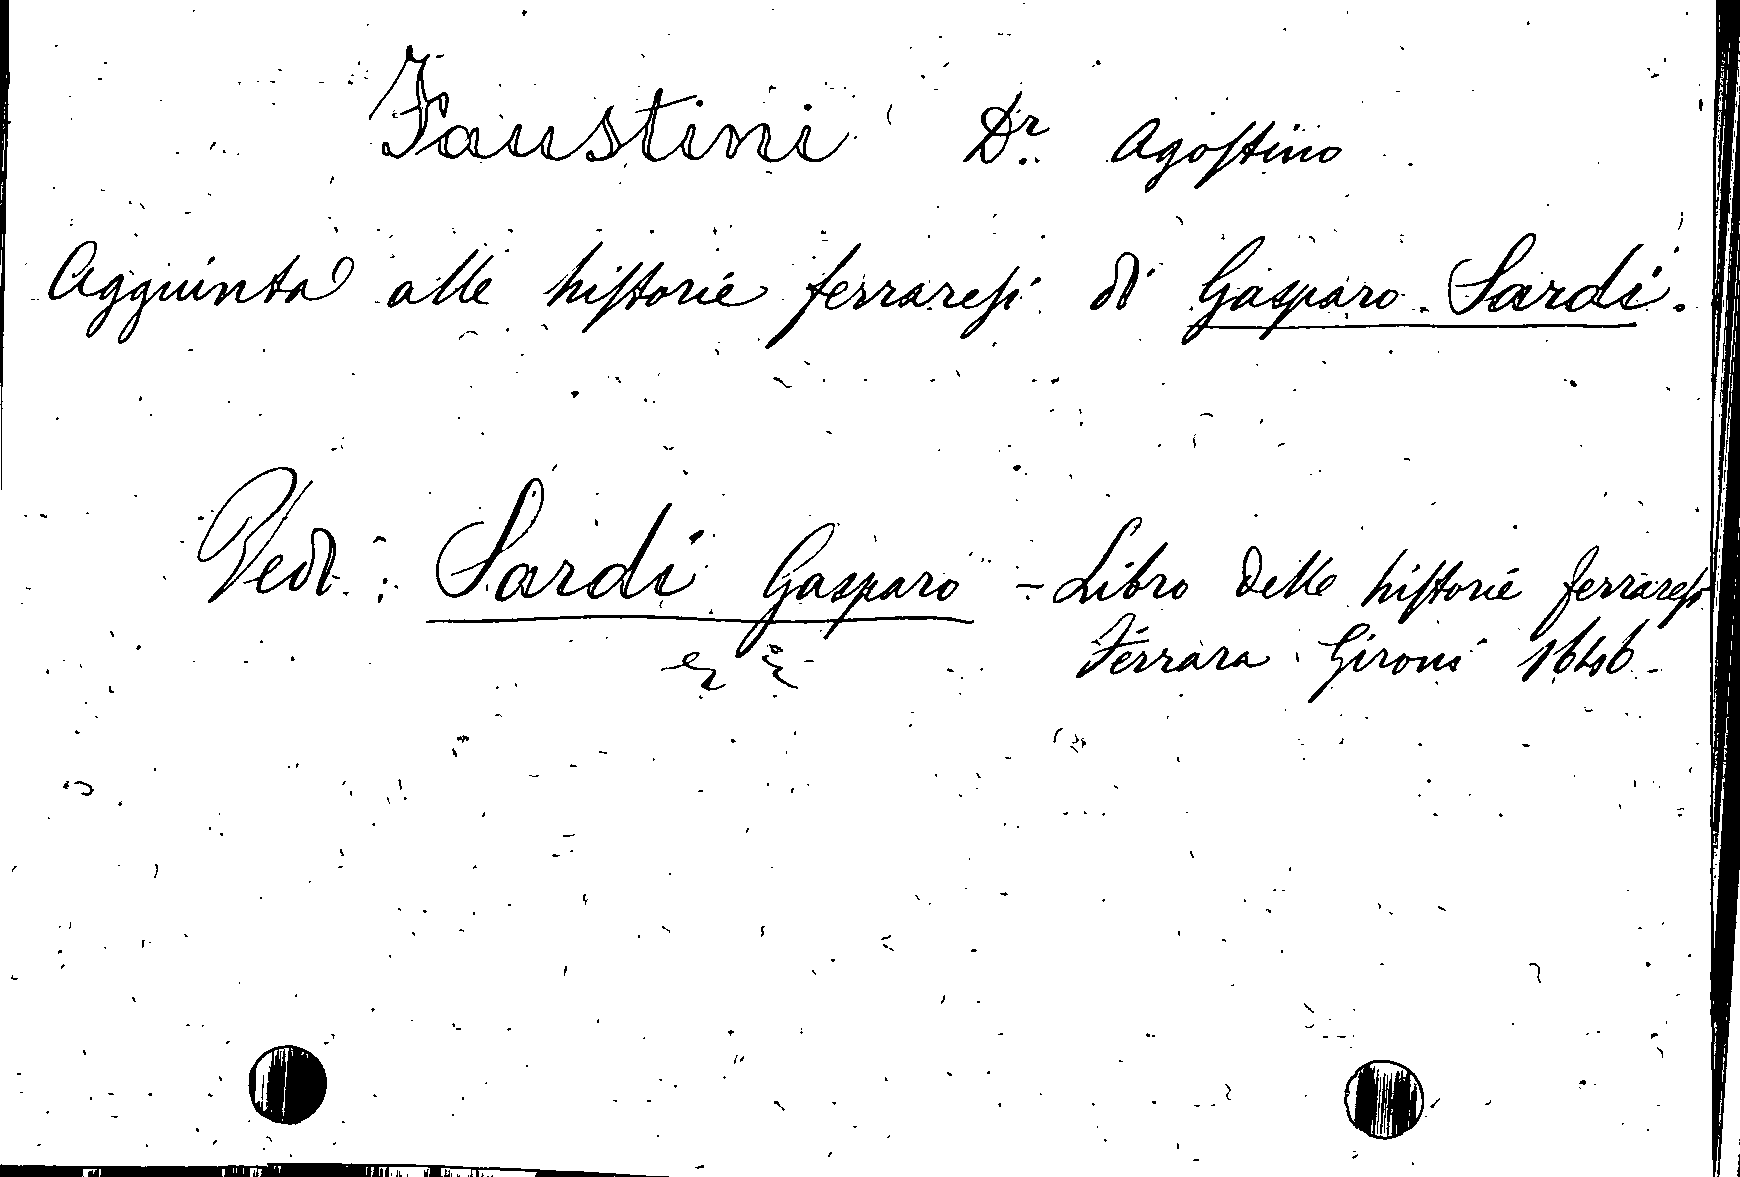 Faustini Dr. Agostino
Aggiunta alle historie ferraresi di Gasparo Sardi.
Vedi: Sardi Gasparo - Libro delle historie ferraresi
Ferrara Gironi 1646